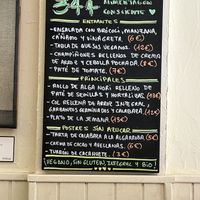 ALIMENTACIÓN
CONSCIENTE
ENTRANTES
- ENSALADA CON BRÓCOLI, MANZANA,
CAÑAMO Y VINAGRETA. (6€)
- TABLA DE QUESOS VEGANO. (12€)
- CHAMPIÑONES RELLENOS DE CREMA
DE ARROZ Y CEBOLLA POCHADA. (8€)
- PATÉ DE TOMATE. (7€)
PRINCIPALES
- ROLLO DE ALGA NORI RELLENO DE
PATÉ DE SEMILLAS Y HORTALIZAS (13€)
- COL RELLENA DE ARROZ INTEGRAL,
GARBANZOS GERMINADOS Y VEGANESA. (13€)
- PLATO DE LA SEMANA. (15€)
POSTRES SIN AZÚCAR
- TARTA DE CALABAZA A LA ALGARROBA (5€)
- CREMA DE CACAO Y AVELLANAS. (6€)
- TURRÓN DE CACAHUETE. (3€)
¡VEGANO, SIN GLUTEN, INTEGRAL Y BIO!